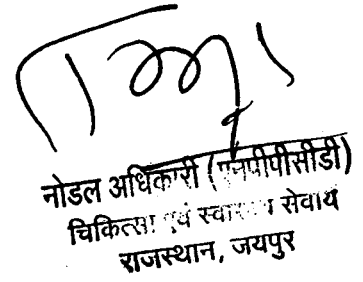 नोडल अधिकारी (एनपीपीसीडी)
चिकित्सा एवं स्वास्थ्य सेवायें
राजस्थान, जयपुर